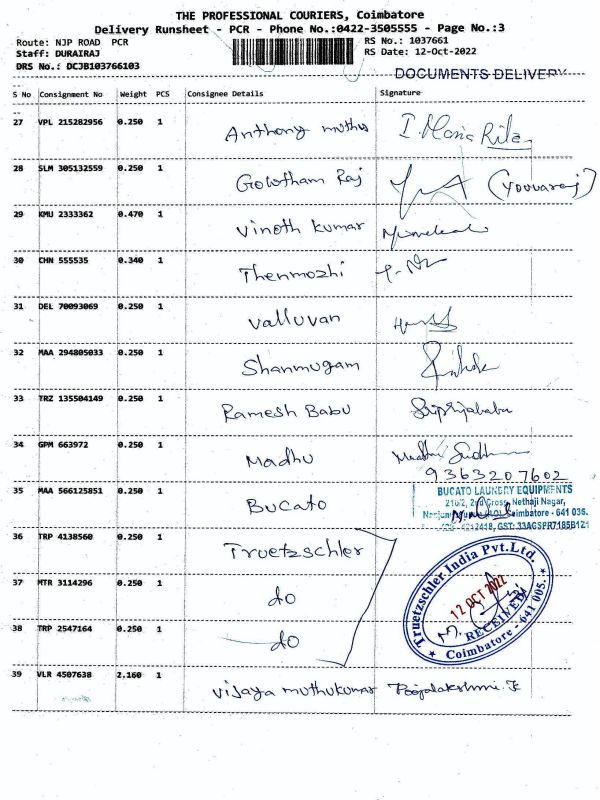 THE PROFESSIONAL COURIERS, Coimbatore
Delivery Runsheet - PCR - Phone No.:0422-3505555 - Page No.:3
Route: NJP ROAD PCR RS No.: 1037661
Staff: DURAIRAJ RS Date: 12-Oct-2022
DRS No.: DCJB103766103
DOCUMENTS DELIVERY
S No Consignment No Weight PCS Consignee Details Signature
27 VPL 215282956 0.250 1 Anthony muthu I. Maria Rita
28 SLM 305132559 0.250 1 Gowtham Raj (Yovvaraj)
29 KMU 2333362 0.470 1 Vinoth kumar
30 CHN 555535 0.340 1 Thenmozhi
31 DEL 70093069 0.250 1 Valluvan
32 MAA 294805033 0.250 1 Shanmugam
33 TRZ 135504149 0.250 1 Ramesh Babu
34 GPM 663972 0.250 1 Madhu
9363207602
35 MAA 566125851 0.250 1 Bucato
BUCATO LAUNDRY EQUIPMENTS
Cross, Nethaji Nagar,
Coimbatore - 641 036.
GST: 33AGSPR7185B1Z1
36 TRP 4138560 0.250 1 Truetzschler
37 MTR 3114296 0.250 1 do
38 TRP 2547164 0.250 1 do
Truetzschler India Pvt.Ltd.
12 OCT 2022
RECEIVED
Coimbatore - 641 005.
39 VLR 4507638 2.160 1 Vijaya muthukumar Poojalakshmi.K